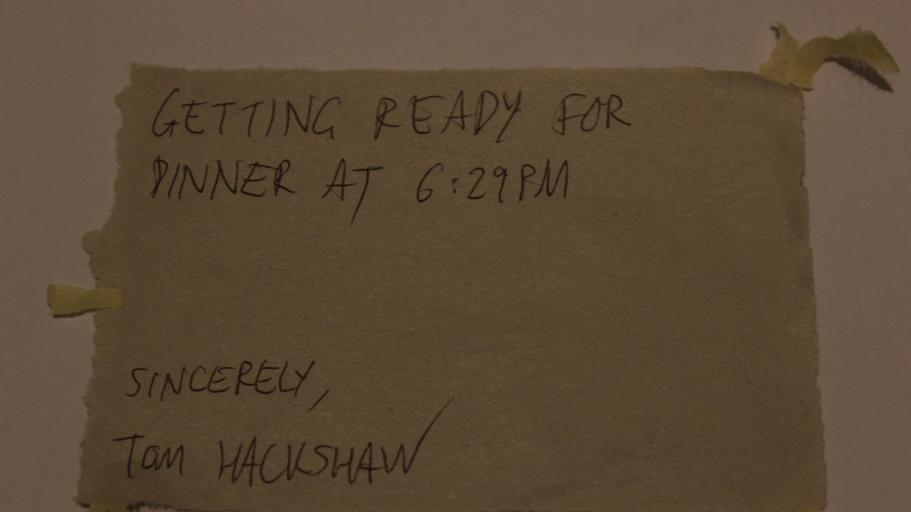 GETTING READY FOR
DINNER AT 6:29PM
SINCERELY,
TOM HACKSHAW